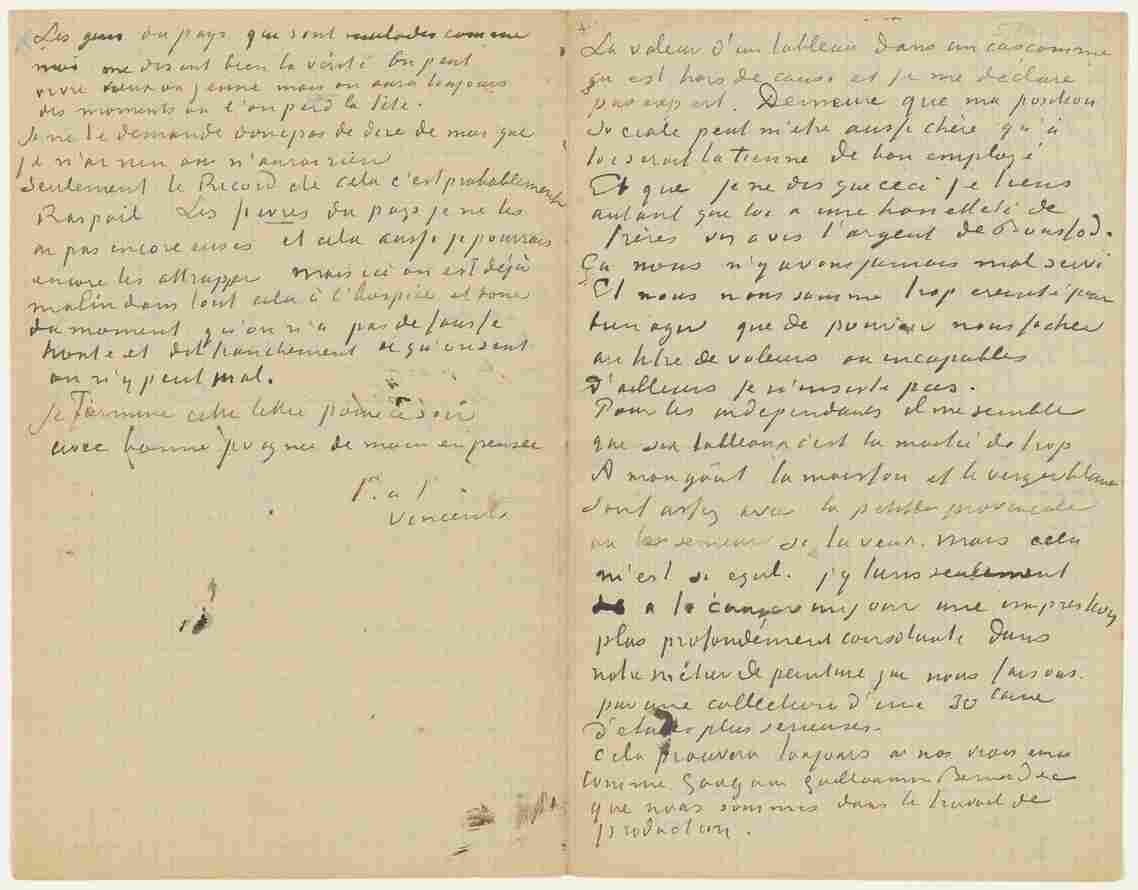 Les gens du pays qui sont malades comme
moi me disent bien la vérité. On peut
vivre vieux ou jeune mais on aura toujours
des moments où l'on perd la tête.
Je ne te demande donc pas de dire de moi que
je n'ai rien ou n'aurai rien
Seulement le Ricord de cela c'est probablement
Raspail Les fievres du pays je ne les
ai pas encore eues et cela aussi je pourrais
encore les attrapper mais ici on est déjà
malin dans tout cela à l'hospice et donc
du moment qu'on n'a pas de fausse
honte et dit franchement ce qu'on sent
on n'y peut mal.
Je termine cette lettre pour ce soir
avec bonne poignee de main en pensée
t. à t.
Vincent
La valeur d'un tableau dans un cas comme
ça est hors de cause et je me déclare
pas expert. Demeure que ma position
sociale peut m'être aussi chère qu'à
toi serait la tienne de bon employé
Et que je ne dis que ceci je tiens
autant que toi à une honetteté de
frères vis à vis l'argent de Boussod.
Ça nous n'y avons jamais mal servi
Et nous nous sommes trop ereinté pour
bien agir que de pouvoir nous facher
au titre de voleurs ou incapables
d'ailleurs je n'insiste pas.
Pour les independants il me semble
que six tableaux c'est la moitié de trop
A mon goût la moisson et le verger blanc
sont assez avec la petite provençale
ou le semeur si tu veux. mais cela
m'est si egal. j'y tiens seulement
à te donner un jour une impression
plus profondément consolante dans
notre métier de peinture que nous faisons
par une collection d'une 30taine
d'etudes plus serieuses.
Cela prouvera toujours à nos vrais amis
comme Gauguin Guillaumin Bernard etc
que nous sommes dans le travail de
production.